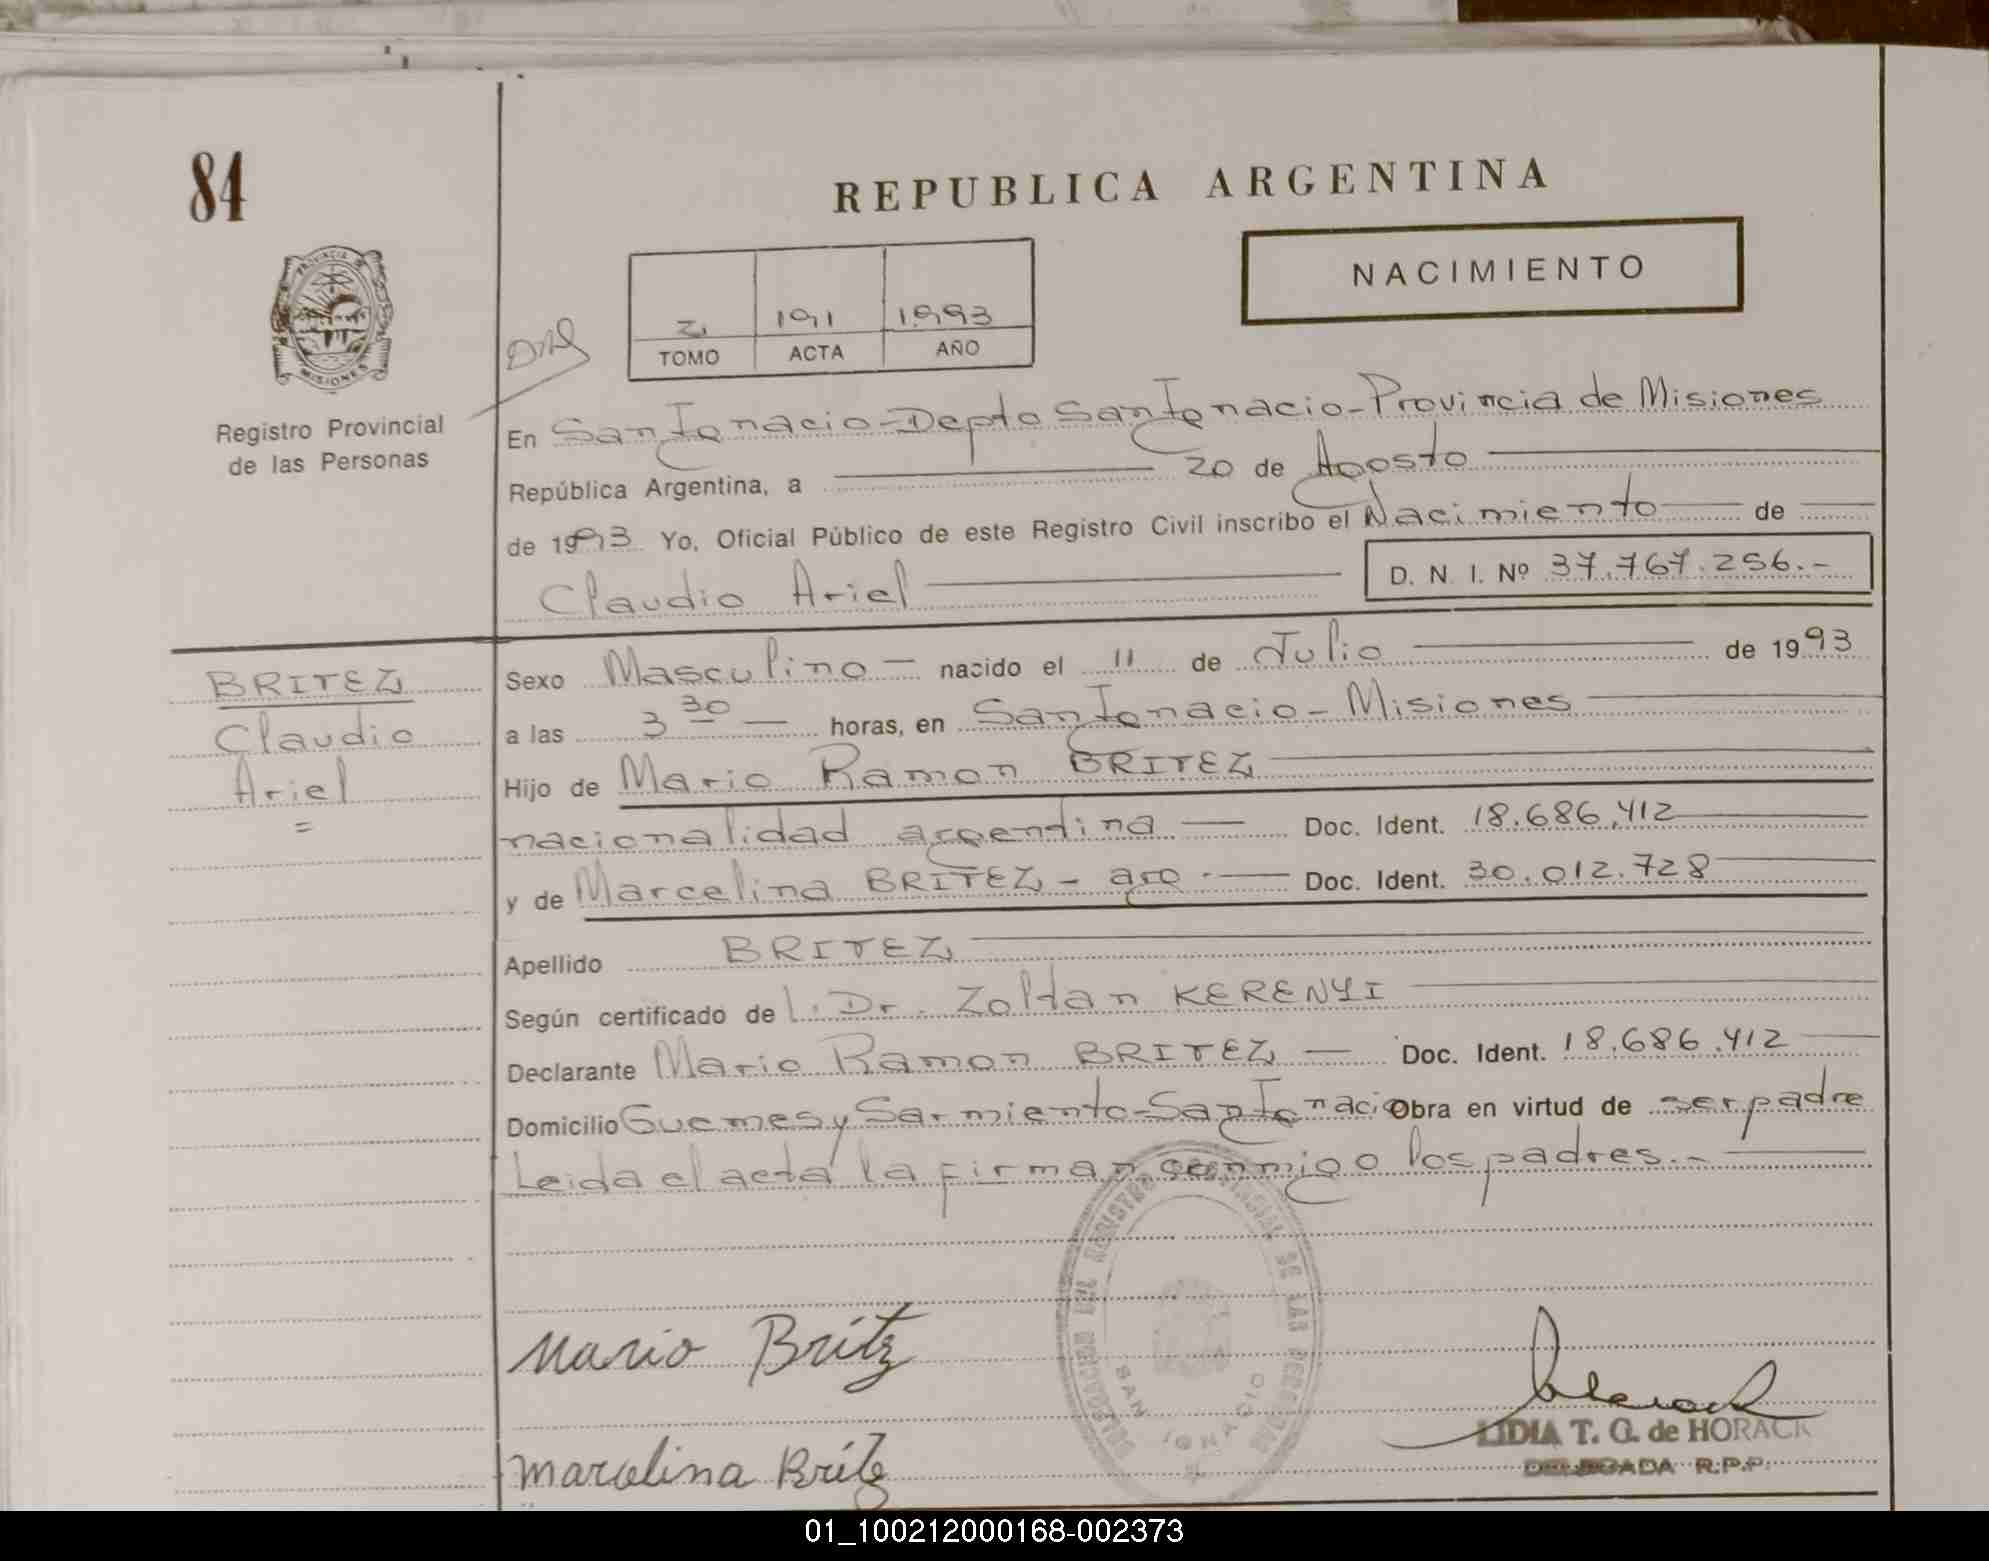 84
REPUBLICA ARGENTINA
NACIMIENTO
PROVINCIA DE
MISIONES
191 1993
TOMO ACTA AÑO
Registro Provincial
de las Personas
En San Ignacio - Depto San Ignacio - Provincia de Misiones
República Argentina, a 20 de Agosto
de 1993 Yo, Oficial Público de este Registro Civil inscribo el Nacimiento de
Claudio Ariel
D. N. I. Nº 37.767.256.-
BRITEZ
Claudio
Ariel
=
Sexo Masculino - nacido el 11 de Julio de 1993
a las 3 30 horas, en San Ignacio - Misiones
Hijo de Mario Ramon BRITEZ
nacionalidad argentina Doc. Ident. 18.686.412
y de Marcelina BRITEZ - arg. Doc. Ident. 30.012.728
Apellido BRITEZ
Según certificado de Dr. Zoltan KERENYI
Declarante Mario Ramon BRITEZ - Doc. Ident. 18.686.412
Domicilio Guemes y Sarmiento - San Ignacio Obra en virtud de ser padre
Leida el acta la firman conmigo los padres.-
DELEGACION DEL REGISTRO PROVINCIAL DE LAS PERSONAS
SAN IGNACIO
Mario Britz
Marcelina Britz
LIDIA T. G. de HORACK
DELEGADA R.P.P.
01_100212000168-002373